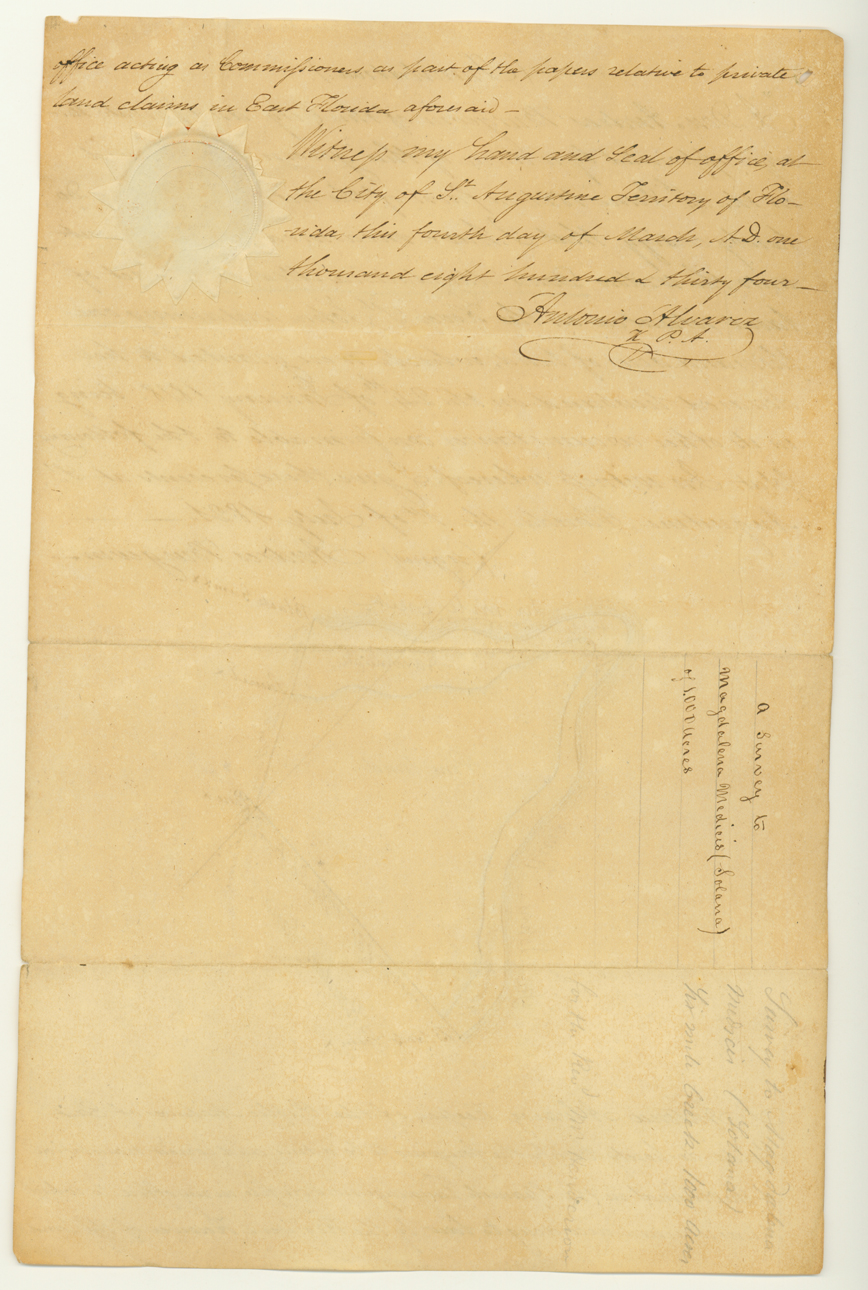 office acting as Commissioners, as part of the papers relative to private
land claims in East Florida aforesaid —
Witness my hand and Seal of office, at
the City of St. Augustine Territory of Flo-
rida, this fourth day of March, A.D. one
thousand eight hundred & thirty four —
Antonio Alvarez
K. P. A.
A Survey to
Magdalena Medicis (Solana)
of 1.000 acres
Survey to Magdalena
Medicis (Solana)
Six mile Creek 1000 Acres